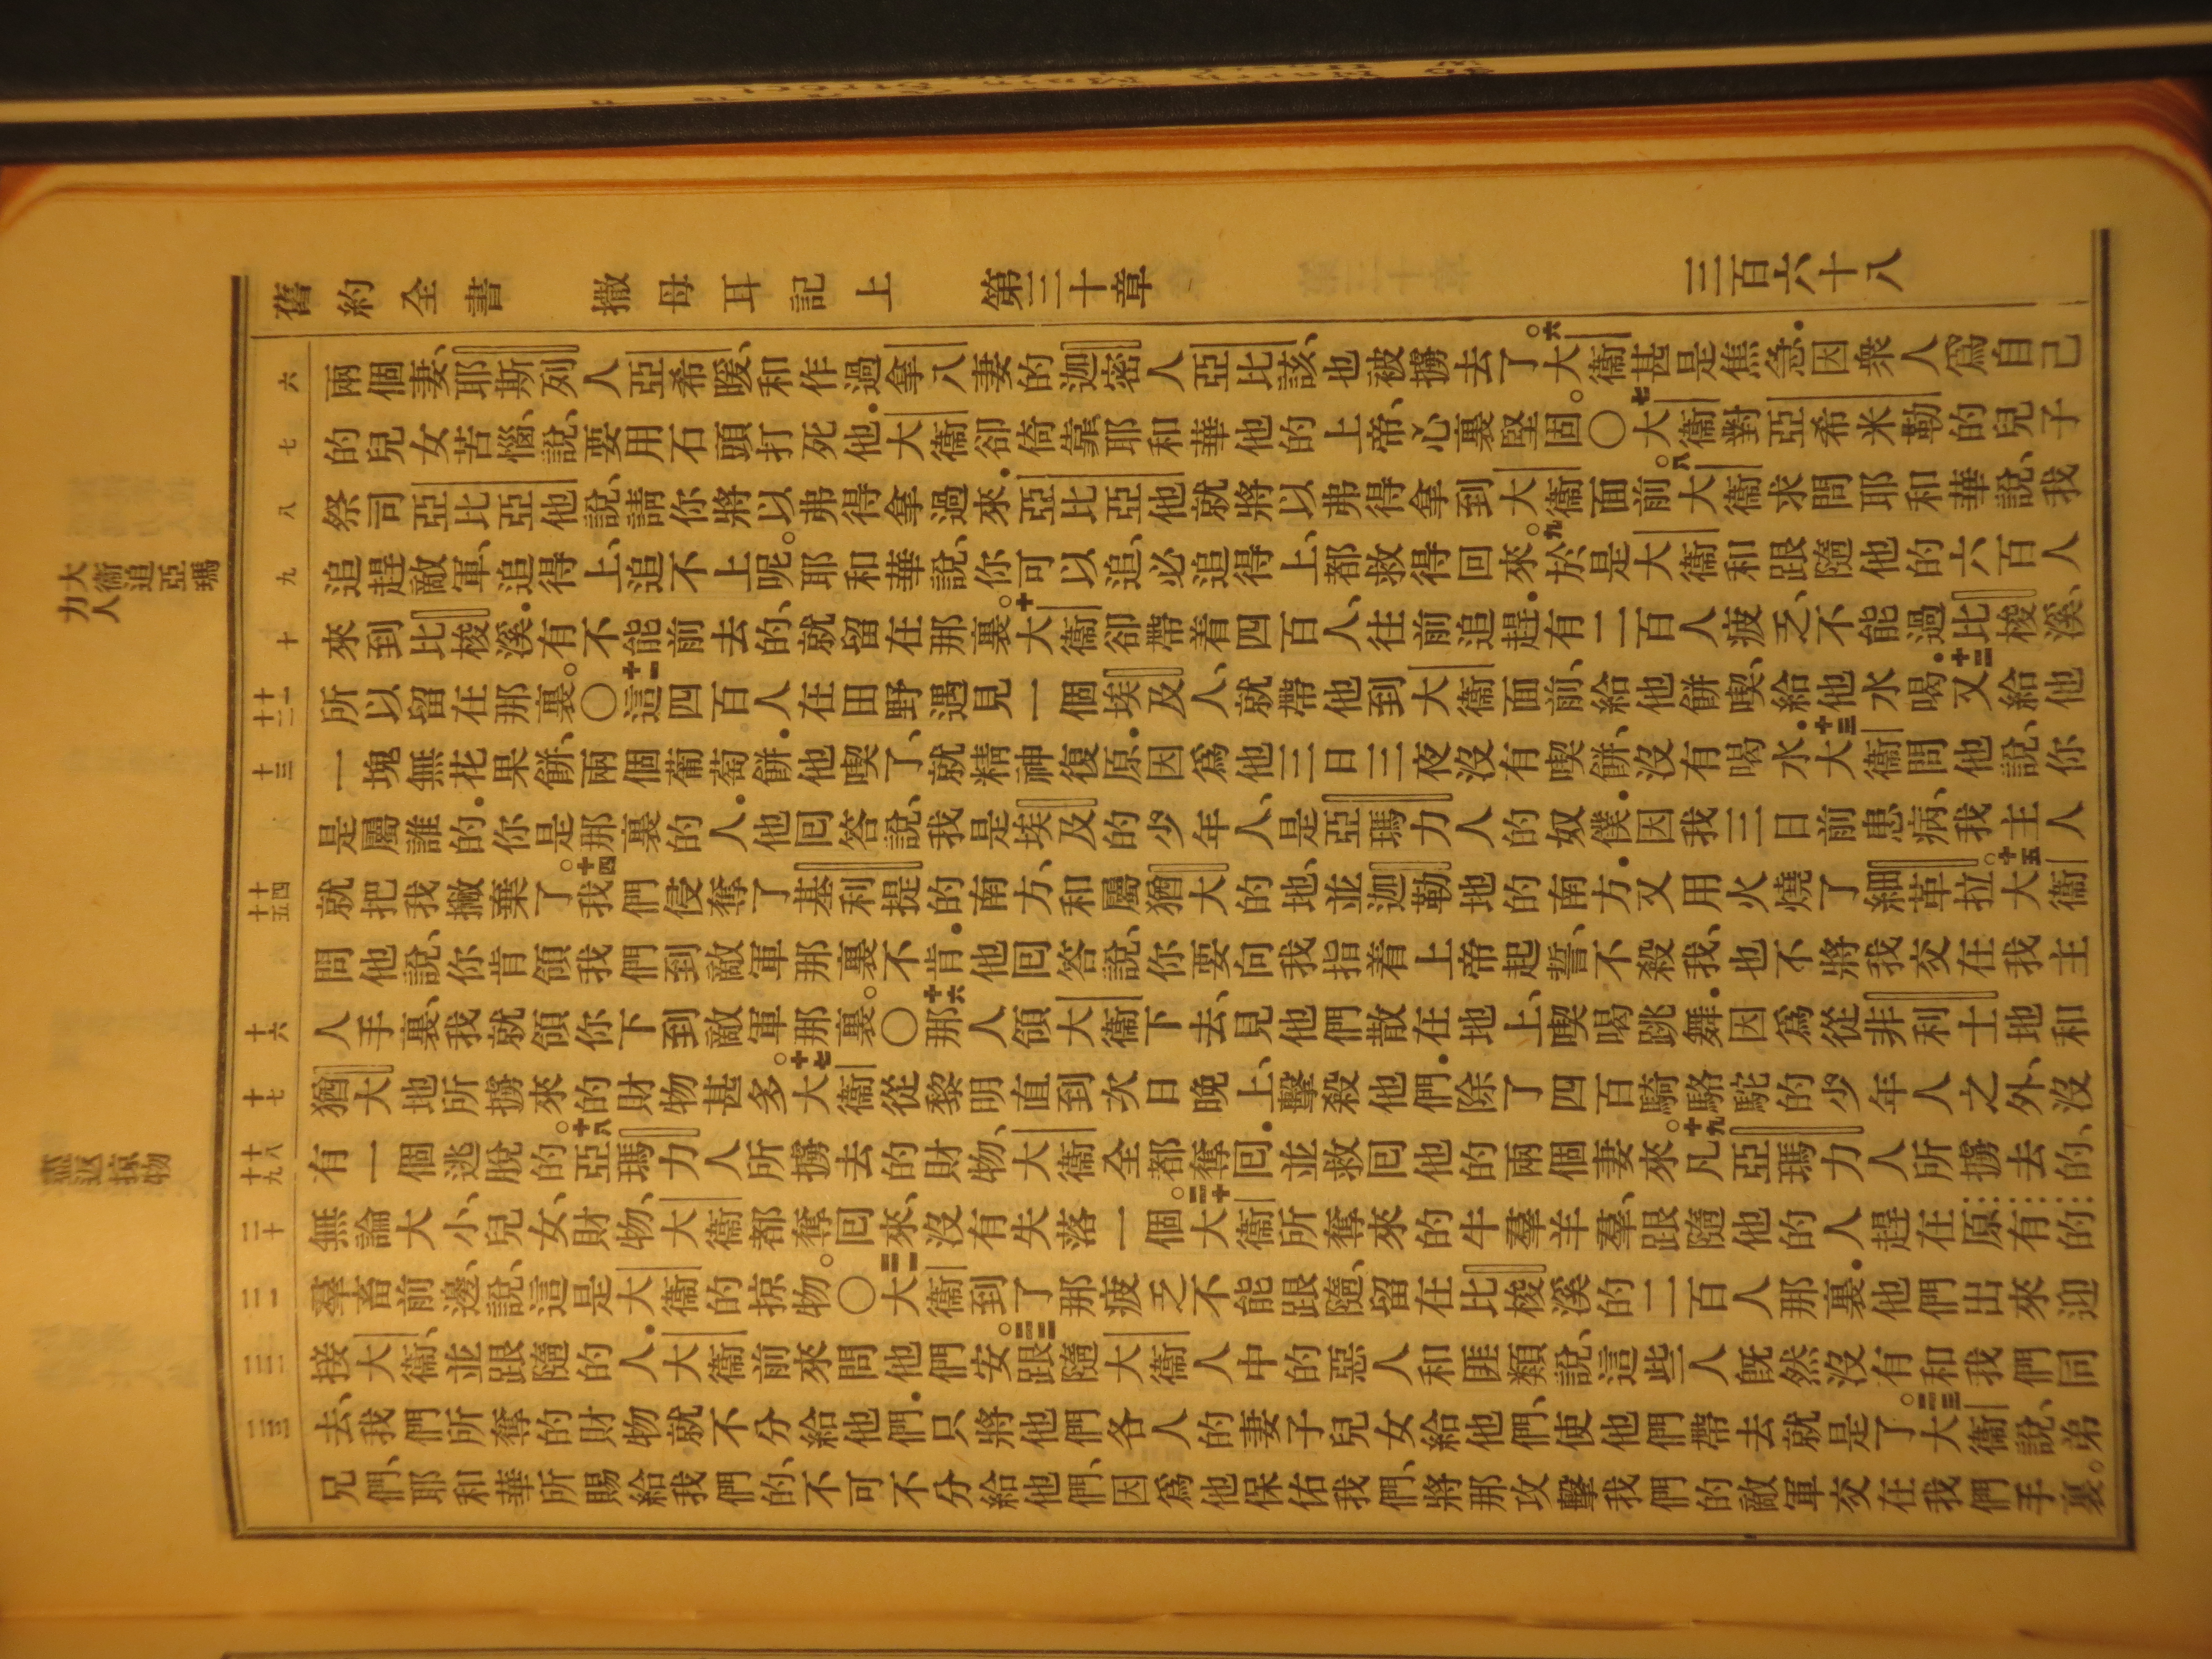 舊約全書 撒母耳記上 第三十章 三百六十八
六
兩個妻、耶斯列人亞希暖、和作過拿八妻的迦密人亞比該、也被擄去了。六大衞甚是焦急.因衆人爲自己
七
的兒女苦惱、說、要用石頭打死他.大衞卻倚靠耶和華他的上帝、心裏堅固。〇七大衞對亞希米勒的兒子
八
祭司亞比亞他說、請你將以弗得拿過來.亞比亞他就將以弗得拿到大衞面前。八大衞求問耶和華說、我
九
追趕敵軍、追得上、追不上呢。耶和華說、你可以追、必追得上、都救得回來。九於是大衞和跟隨他的六百人
十
來到比梭溪.有不能前去的、就留在那裏。十大衞卻帶着四百人、往前追趕.有二百人疲乏、不能過比梭溪、
十一 十二
所以留在那裏。〇十一這四百人在田野遇見一個埃及人、就帶他到大衞面前、給他餅喫、給他水喝.十二又給他
十三
一塊無花果餅、兩個葡萄餅.他喫了、就精神復原.因爲他三日三夜沒有喫餅、沒有喝水.十三大衞問他說、你
是屬誰的.你是那裏的人.他回答說、我是埃及的少年人、是亞瑪力人的奴僕.因我三日前患病、我主人
十四 十五
就把我撇棄了。十四我們侵奪了基利提的南方、和屬猶大的地、並迦勒地的南方.又用火燒了細革拉。十五大衞
問他說、你肯領我們到敵軍那裏不肯.他回答說、你要向我指着上帝起誓、不殺我、也不將我交在我主
十六
人手裏、我就領你下到敵軍那裏。〇十六那人領大衞下去、見他們散在地上、喫喝跳舞.因爲從非利士地和
十七
猶大地所擄來的財物甚多。十七大衞從黎明直到次日晚上、擊殺他們.除了四百騎駱駝的少年人之外、沒
十八 十九
有一個逃脫的。十八亞瑪力人所擄去的財物、大衞全都奪回.並救回他的兩個妻來。十九凡亞瑪力人所擄去的、
二十
無論大小、兒女、財物、大衞都奪回來、沒有失落一個。二十大衞所奪來的牛羣羊羣、跟隨他的人趕在原有的
二一
羣畜前邊、說、這是大衞的掠物。〇二一大衞到了那疲乏不能跟隨、留在比梭溪的二百人那裏.他們出來迎
二二
接大衞、並跟隨的人.大衞前來問他們安。二二跟隨大衞人中的惡人和匪類說、這些人既然沒有和我們同
二三
去、我們所奪的財物就不分給他們.只將他們各人的妻子兒女給他們、使他們帶去就是了。二三大衞說、弟
兄們、耶和華所賜給我們的、不可不分給他們、因爲他保佑我們、將那攻擊我們的敵軍交在我們手裏。
大衞追亞瑪力人
盡返掠物